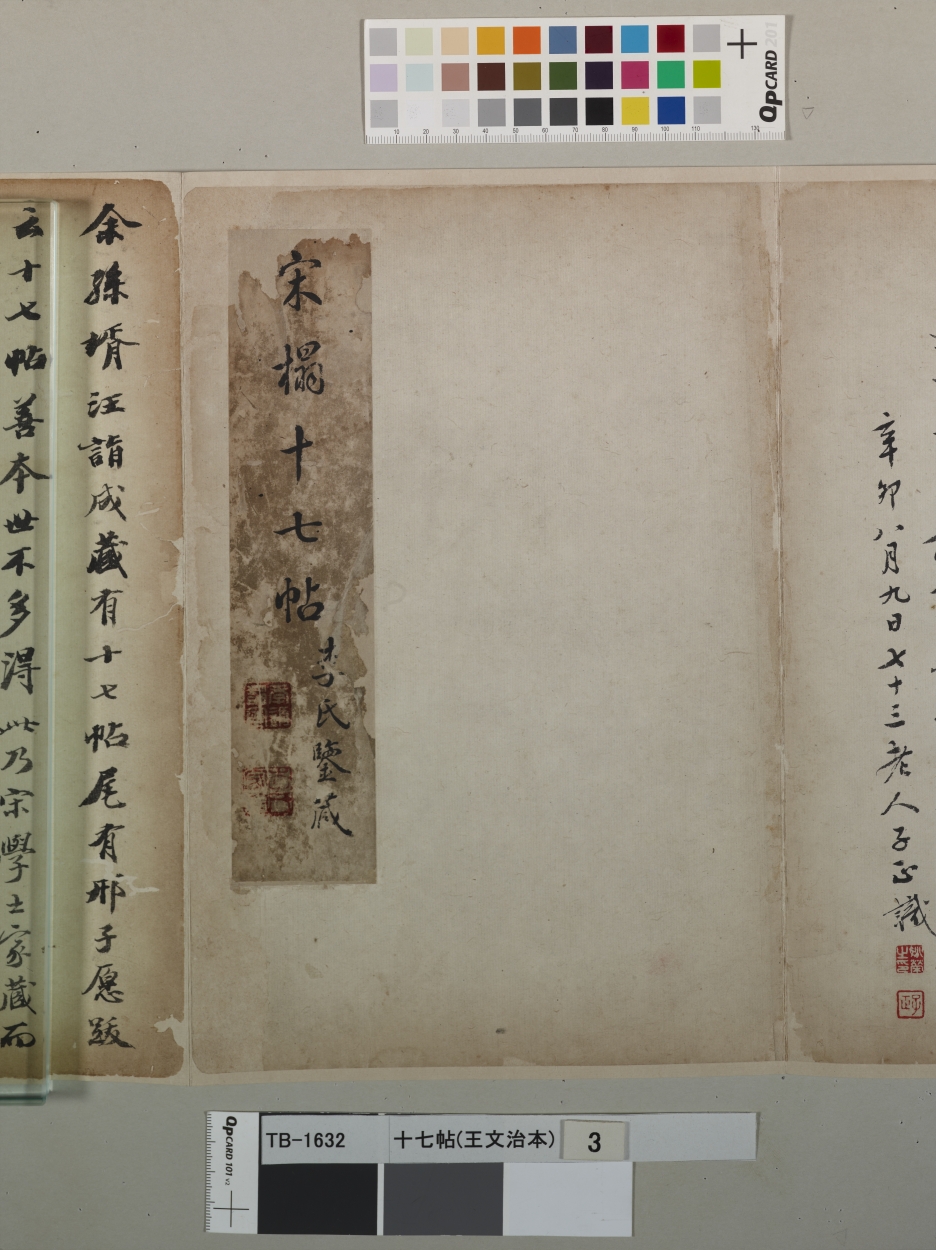 QpCARD 201
10 20 30 40 50 60 70 80 90 100 110 130
辛卯八月九日七十三老人子正識
宋榻十七帖
李氏鑒藏
余孫壻汪詣成藏有十七帖尾有邢子愿跋
云十七帖善本世不多得此乃宋學士家藏而
QpCARD 101 v2
TB-1632
十七帖(王文治本)
3